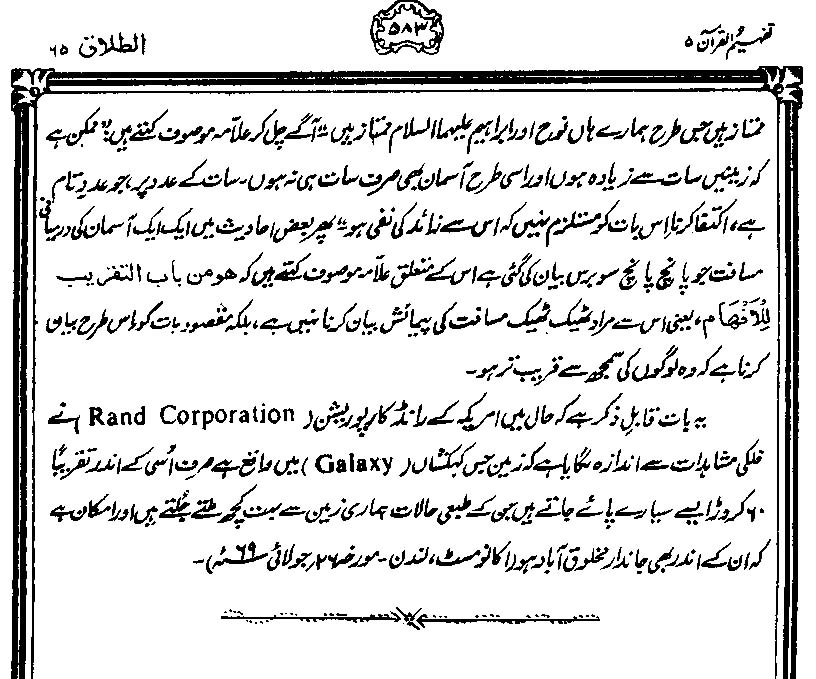 تفہیم القرآن ۵
۵۸۳
الطلاق ۶۵
ممتاز ہیں جس طرح ہمارے ہاں نوح اور ابراہیم علیہما السلام ممتاز ہیں"۔ آگے چل کر علّامہ موصوف کہتے ہیں: "ممکن ہے
کہ زمینیں سات سے زیادہ ہوں اور اسی طرح آسمان بھی صرف سات ہی نہ ہوں۔ سات کے عدد پر، جو عددِ تام
ہے، اکتفا کرنا اِس بات کو مستلزم نہیں کہ اس سے زائد کی نفی ہو"۔ پھر بعض احادیث میں ایک ایک آسمان کی درمیانی
مسافت جو پانچ پانچ سو برس بیان کی گئی ہے اس کے متعلق علّامہ موصوف کہتے ہیں کہ ھو من باب التقریب
لِلْاَفْھَام، یعنی اس سے مراد ٹھیک ٹھیک مسافت کی پیمائش بیان کرنا نہیں ہے، بلکہ مقصود بات کو اِس طرح بیان
کرنا ہے کہ وہ لوگوں کی سمجھ سے قریب تر ہو۔
یہ بات قابلِ ذکر ہے کہ حال میں امریکہ کے رانڈ کارپوریشن (Rand Corporation) نے
فلکی مشاہدات سے اندازہ لگایا ہے کہ زمین جس کہکشاں (Galaxy) میں واقع ہے صرف اُسی کے اندر تقریباً
۶۰ کروڑ ایسے سیارے پائے جاتے ہیں جن کے طبعی حالات ہماری زمین سے بہت کچھ ملتے جُلتے ہیں اور امکان ہے
کہ ان کے اندر بھی جاندار مخلوق آباد ہو (اکانومسٹ، لندن۔ مورخہ ۲۶؍ جولائی ۶۹ء)۔